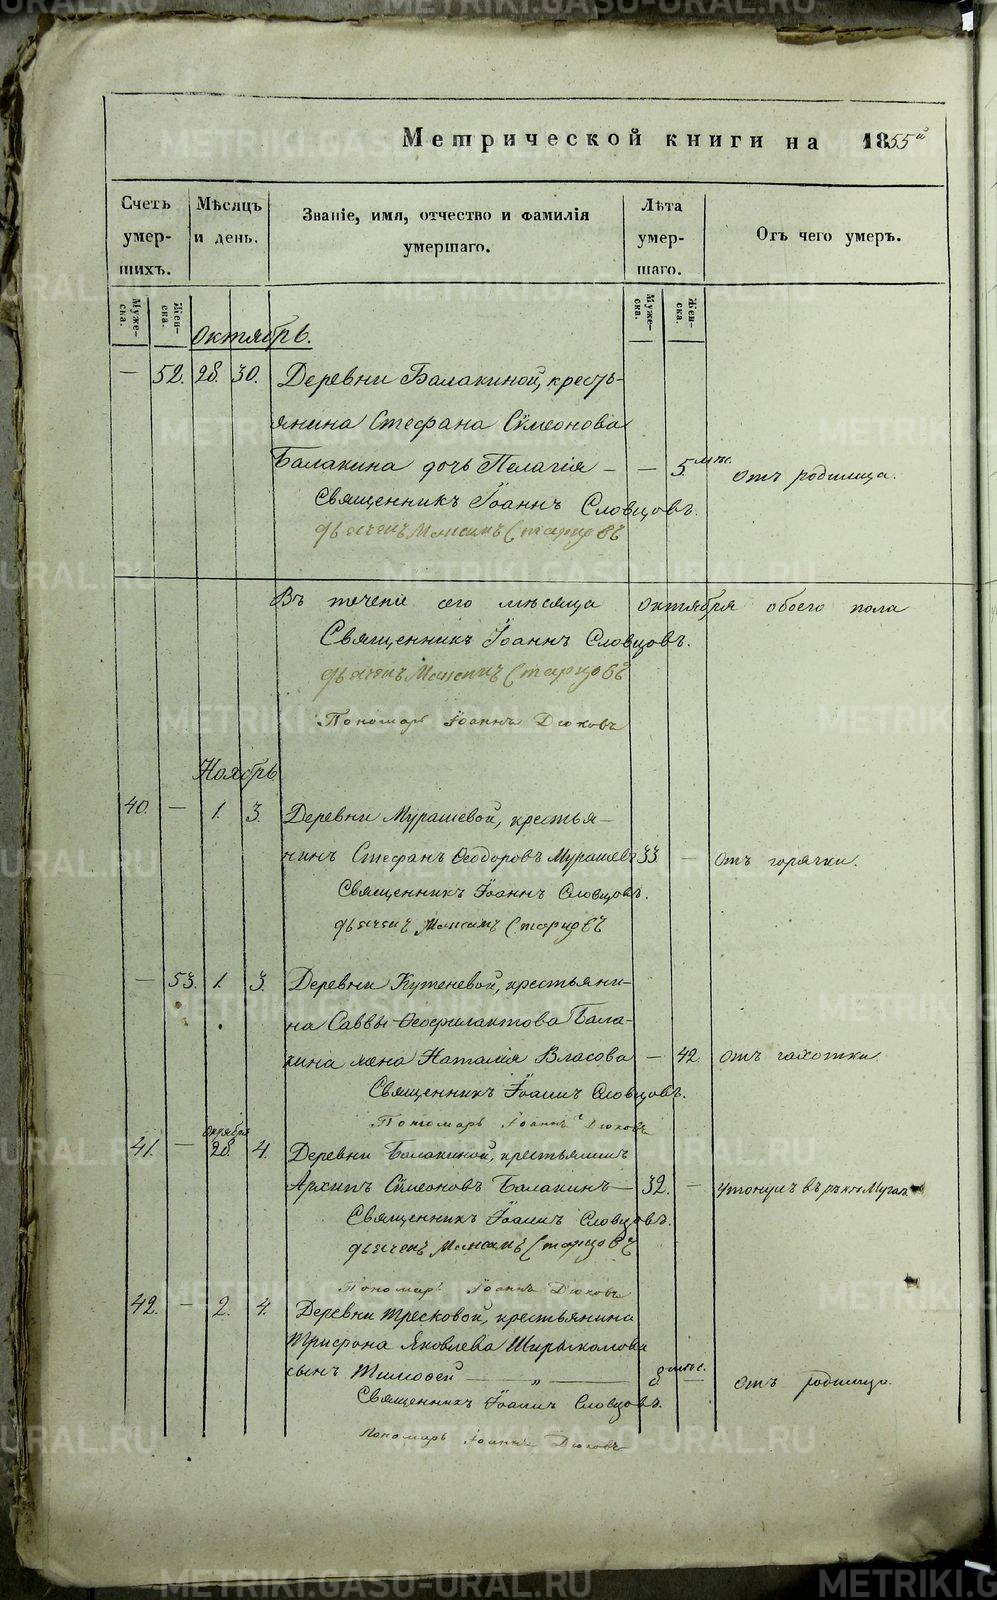 Метрической книги на 1855й
Счетъ умер-шихъ.
Мѣсяцъ и день.
Званіе, имя, отчество и фамилія умершаго.
Лѣта умер-шаго.
Отъ чего умеръ.
Муже-ска.
Жен-ска.
Муже-ска.
Жен-ска.
Октябрь.
— 52. 28. 30. Деревни Балакиной, кресть-
янина Стефана Сѵмеонова
Балакина дочь Пелагія — — 5 мѣс. отъ родимца.
Священникъ Іоаннъ Словцовъ.
дьячекъ Максимъ Старцовъ
Въ теченіе сего мѣсяца октября обоего пола
Священникъ Іоаннъ Словцовъ.
дьячекъ Максимъ Старцовъ
Пономарь Іоаннъ Дюковъ
Ноябрь
40. — 1. 3. Деревни Мурашевой, крестья-
нинъ Стефанъ Ѳеодоровъ Мурашевъ 33 — отъ горячки.
Священникъ Іоаннъ Словцовъ.
дьячекъ Максимъ Старцовъ
— 53. 1. 3. Деревни Кутеневой, крестьяни-
на Саввы Ѳеофилактова Бала-
кина жена Наталія Власова — 42. отъ чахотки
Священникъ Іоаннъ Словцовъ.
Пономарь Іоаннъ Дюковъ
октября
41. — 28. 4. Деревни Балакиной, крестьянинъ
Архипъ Сѵмеоновъ Балакинъ — 32. — утонулъ въ рѣкѣ
Священникъ Іоаннъ Словцовъ.
дьячекъ Максимъ Старцовъ
Пономарь Іоаннъ Дюковъ
42. — 2. 4. Деревни Тресковой, крестьянина
Трифона Яковлева
сынъ Тимофей — „ — 8 мѣс. — отъ родимца.
Священникъ Іоаннъ Словцовъ.
Пономарь Іоаннъ Дюковъ
METRIKI.GASO-URAL.RU